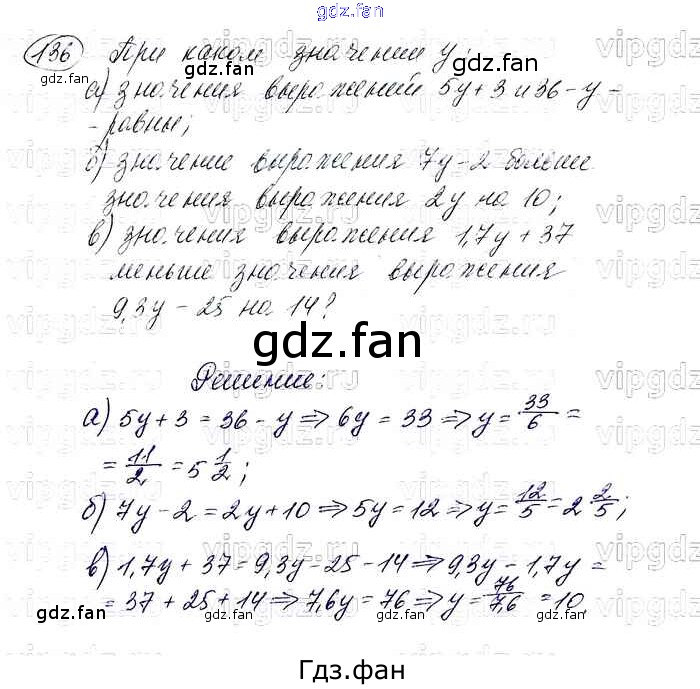 gdz.fan
136 При каком значении y:
а) значения выражений 5y + 3 и 36 - y -
- равны;
б) значение выражения 7y - 2 больше
значения выражения 2y на 10;
в) значения выражения 1,7y + 37
меньше значения выражения
9,3y - 25 на 14?
gdz.fan
Решение:
а) 5y + 3 = 36 - y ⇒ 6y = 33 ⇒ y = 33/6 =
= 11/2 = 5 1/2;
б) 7y - 2 = 2y + 10 ⇒ 5y = 12 ⇒ y = 12/5 = 2 2/5;
в) 1,7y + 37 = 9,3y - 25 - 14 ⇒ 9,3y - 1,7y =
= 37 + 25 + 14 ⇒ 7,6y = 76 ⇒ y = 76/7,6 = 10
gdz.fan
gdz.fan
Гдз.фан